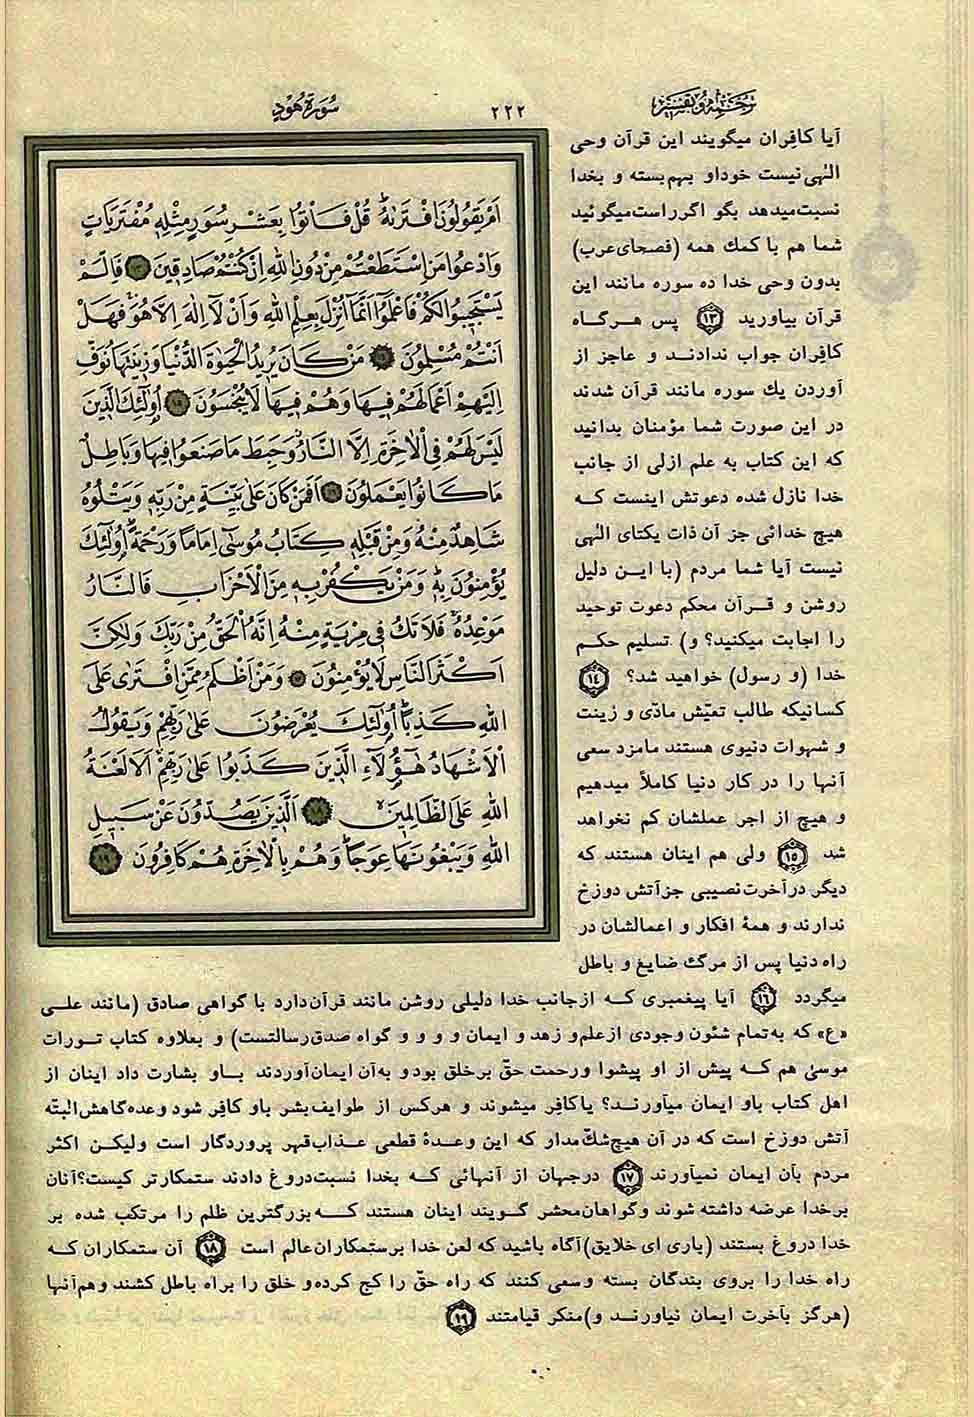 ترجمه و تفسیر
۲۲۲
سُورَة هُودٍ
اَمْ يَقُولُونَ افْتَرٰيهُ قُلْ فَأْتُوا بِعَشْرِ سُوَرٍ مِثْلِهِ مُفْتَرَيَاتٍ
وَادْعُوا مَنِ اسْتَطَعْتُمْ مِنْ دُونِ اللّٰهِ اِنْ كُنْتُمْ صَادِقِينَ ۱۳ فَاِلَّمْ
يَسْتَجِيبُوا لَكُمْ فَاعْلَمُوٓا اَنَّمَآ اُنْزِلَ بِعِلْمِ اللّٰهِ وَاَنْ لَآ اِلٰهَ اِلَّا هُوَ فَهَلْ
اَنْتُمْ مُسْلِمُونَ ۱۴ مَنْ كَانَ يُرِيدُ الْحَيٰوةَ الدُّنْيَا وَزِينَتَهَا نُوَفِّ
اِلَيْهِمْ اَعْمَالَهُمْ فِيهَا وَهُمْ فِيهَا لَا يُبْخَسُونَ ۱۵ اُولٰٓئِكَ الَّذِينَ
لَيْسَ لَهُمْ فِي الْاٰخِرَةِ اِلَّا النَّارُ وَحَبِطَ مَا صَنَعُوا فِيهَا وَبَاطِلٌ
مَا كَانُوا يَعْمَلُونَ ۱۶ اَفَمَنْ كَانَ عَلٰى بَيِّنَةٍ مِنْ رَبِّهِ وَيَتْلُوهُ
شَاهِدٌ مِنْهُ وَمِنْ قَبْلِهِ كِتَابُ مُوسٰٓى اِمَامًا وَرَحْمَةً اُولٰٓئِكَ
يُؤْمِنُونَ بِهِ وَمَنْ يَكْفُرْ بِهِ مِنَ الْاَحْزَابِ فَالنَّارُ
مَوْعِدُهُ فَلَا تَكُ فِي مِرْيَةٍ مِنْهُ اِنَّهُ الْحَقُّ مِنْ رَبِّكَ وَلٰكِنَّ
اَكْثَرَ النَّاسِ لَا يُؤْمِنُونَ ۱۷ وَمَنْ اَظْلَمُ مِمَّنِ افْتَرٰى عَلَى
اللّٰهِ كَذِبًا اُولٰٓئِكَ يُعْرَضُونَ عَلٰى رَبِّهِمْ وَيَقُولُ
الْاَشْهَادُ هٰٓؤُلَآءِ الَّذِينَ كَذَبُوا عَلٰى رَبِّهِمْ اَلَا لَعْنَةُ
اللّٰهِ عَلَى الظَّالِمِينَ ۱۸ اَلَّذِينَ يَصُدُّونَ عَنْ سَبِيلِ
اللّٰهِ وَيَبْغُونَهَا عِوَجًا وَهُمْ بِالْاٰخِرَةِ هُمْ كَافِرُونَ ۱۹
آیا کافِران میگویند این قرآن وحی
الٰهی نیست خود او بهم بسته و بخدا
نسبت میدهد بگو اگر راست میگوئید
شما هم با کمك همه (فصحای عرب)
بدون وحی خدا ده سوره مانند این
قرآن بیاورید ۱۳ پس هرگاه
کافِران جواب ندادند و عاجز از
آوردن یك سوره مانند قرآن شدند
در این صورت شما مؤمنان بدانید
که این کتاب به علم ازلی از جانب
خدا نازل شده دعوتش اینست که
هیچ خدائی جز آن ذات یکتای الٰهی
نیست آیا شما مردم (با این دلیل
روشن و قرآن محکم دعوت توحید
را اجابت میکنید؟ و) تسلیم حکم
خدا (و رسول) خواهید شد؟ ۱۴
کسانیکه طالب تعیّش مادّی و زینت
و شهوات دنیوی هستند ما مزد سعی
آنها را در کار دنیا کاملاً میدهیم
و هیچ از اجر عملشان کم نخواهد
شد ۱۵ ولی هم اینان هستند که
دیگر در آخرت نصیبی جز آتش دوزخ
ندارند و همهٔ افکار و اعمالشان در
راه دنیا پس از مرگ ضایع و باطل
میگردد ۱۶ آیا پیغمبری که از جانب خدا دلیلی روشن مانند قرآن دارد با گواهی صادق (مانند علی
«ع» که به تمام شئون وجودی از علم و زهد و ایمان و و و و گواه صدق رسالتست) و بعلاوه کتاب تورات
موسیٰ هم که پیش از او پیشوا و رحمت حقّ بر خلق بود و به آن ایمان آوردند باو بشارت داد اینان از
اهل کتاب باو ایمان میآورند؟ یا کافِر میشوند و هرکس از طوایف بشر باو کافِر شود وعده گاهش البتّه
آتش دوزخ است که در آن هیچ شكّ مدار که این وعدهٔ قطعی عذاب قهر پروردگار است ولیکن اکثر
مردم بآن ایمان نمیآورند ۱۷ در جهان از آنهائی که بخدا نسبت دروغ دادند ستمکارتر کیست؟ آنان
بر خدا عرضه داشته شوند و گواهان محشر گویند اینان هستند که بزرگترین ظلم را مرتکب شده بر
خدا دروغ بستند (باری ای خلایق) آگاه باشید که لعن خدا بر ستمکاران عالم است ۱۸ آن ستمکاران که
راه خدا را بروی بندگان بسته و سعی کنند که راه حقّ را کج کرده و خلق را براه باطل کشند و هم آنها
(هرگز بآخرت ایمان نیاورند و) منکر قیامتند ۱۹